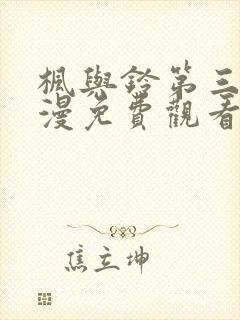 楓與鈴第三
漫免費觀看
焦立坤